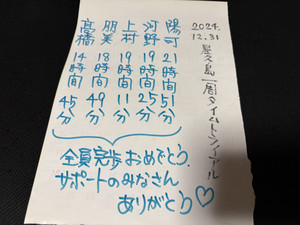 2024.
12.31
屋久島一周タイムトライアル
陽可 21時間51分
河野 19時間25分
上村 19時間11分
朋美 18時間49分
髙橋 14時間45分
全員完歩おめでとう
サポートのみなさん
ありがとう♡